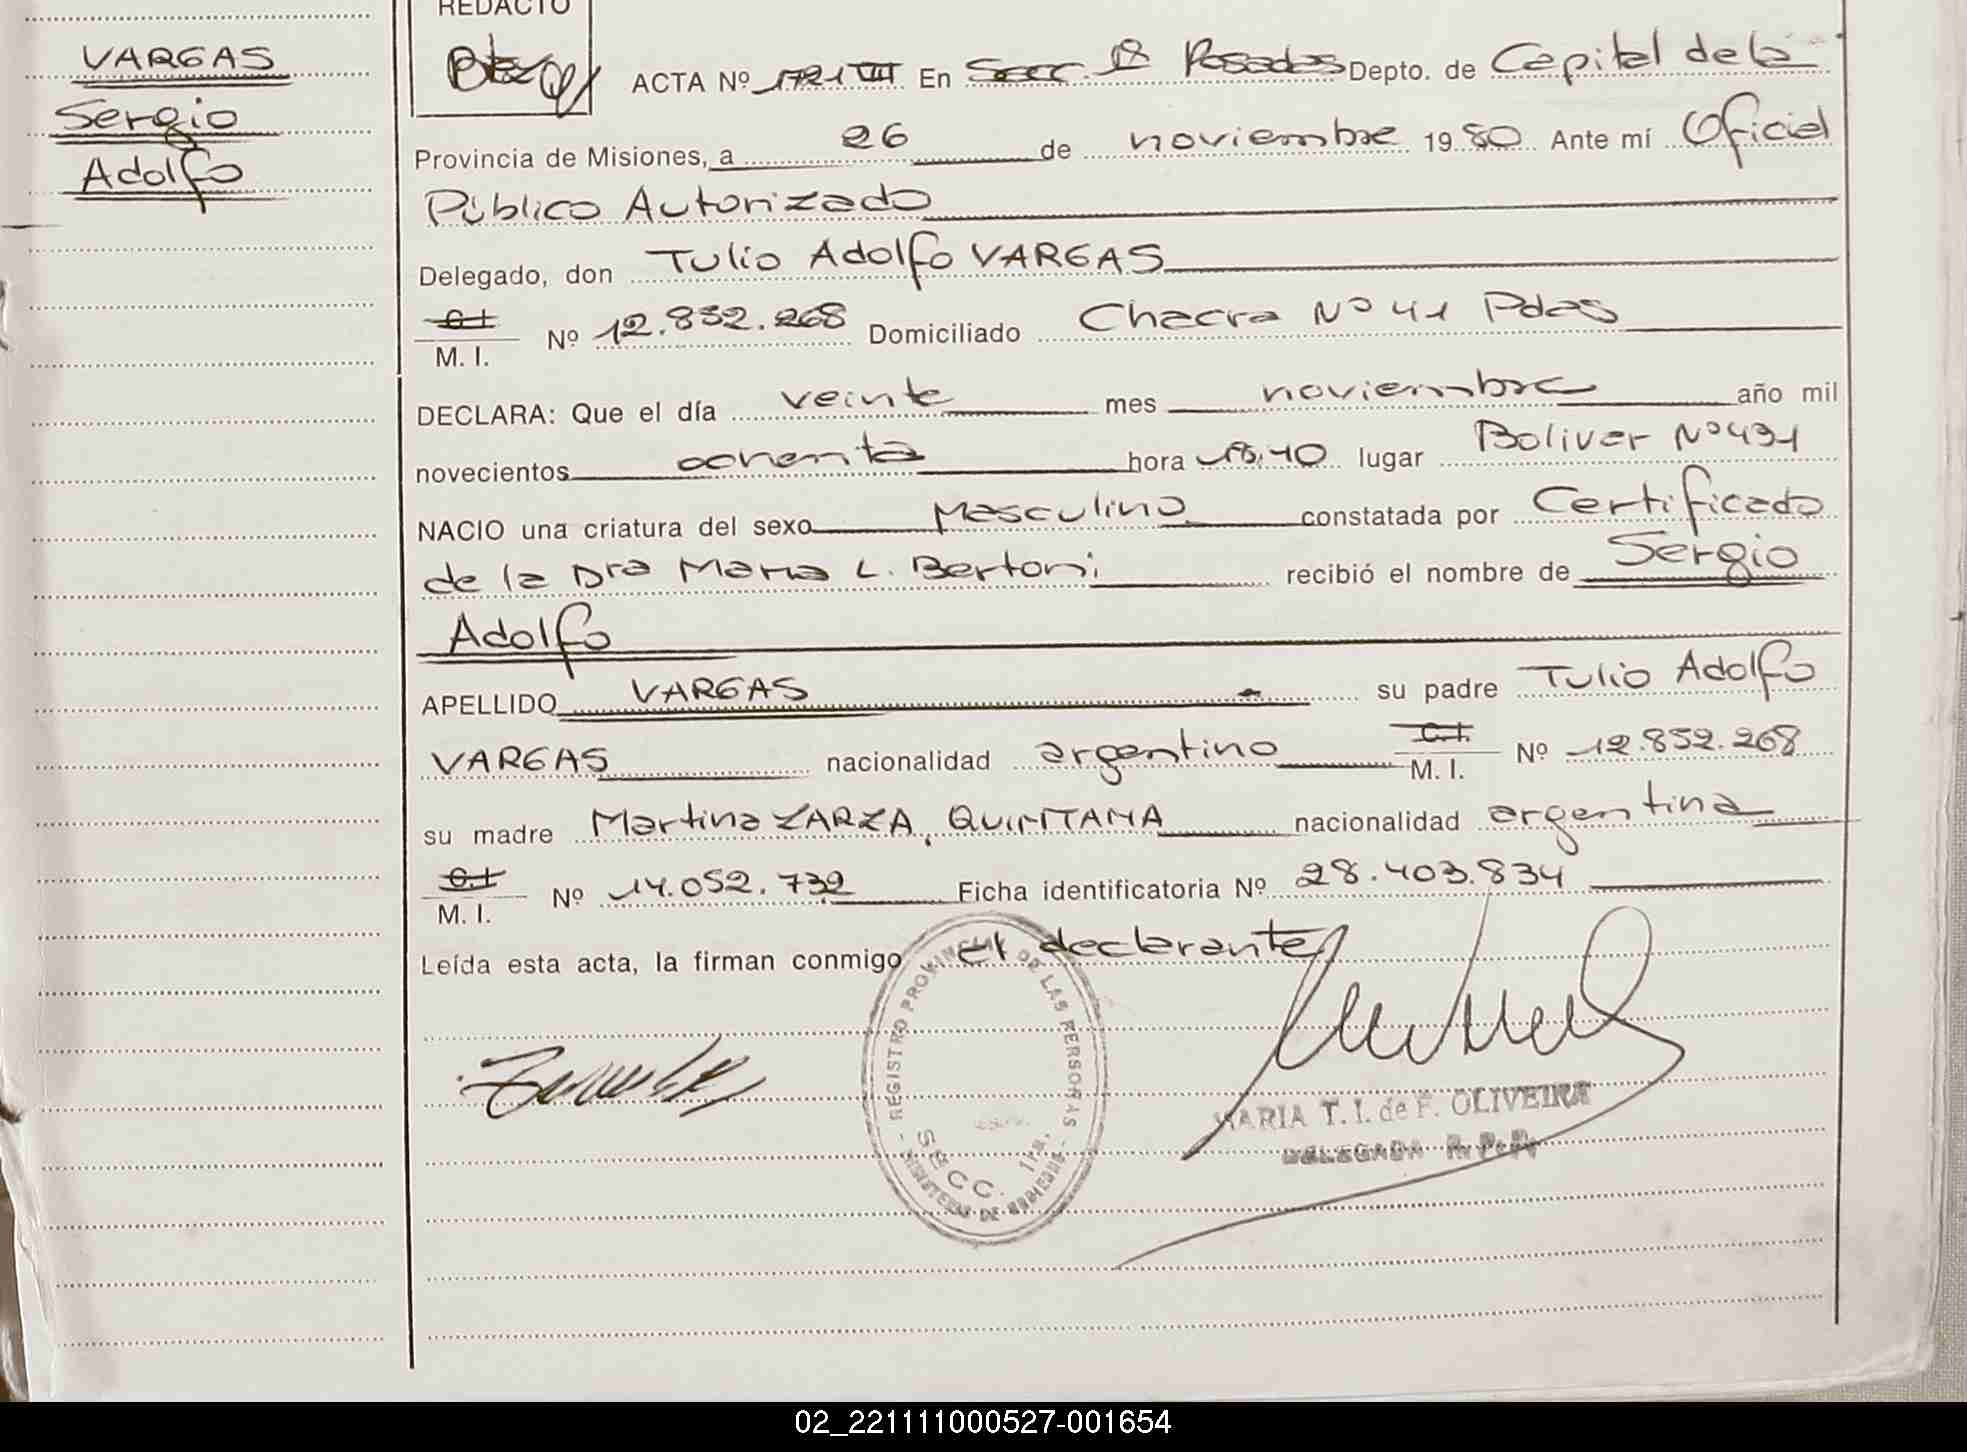 VARGAS
Sergio
Adolfo
REDACTO
ACTA Nº 1721 VIII En Secc. 1ª Posadas Depto. de Capital de la
Provincia de Misiones, a 26 de noviembre 1980 Ante mí Oficial
Público Autorizado
Delegado, don Tulio Adolfo VARGAS
C.I.
M. I. Nº 12.852.268 Domiciliado Chacra Nº 41 Pdas
DECLARA: Que el día veinte mes noviembre año mil
novecientos ochenta hora 18,40 lugar Bolivar Nº 431
NACIO una criatura del sexo Masculino constatada por Certificado
de la Dra Maria L. Bertoni recibió el nombre de Sergio
Adolfo
APELLIDO VARGAS su padre Tulio Adolfo
VARGAS nacionalidad argentino C.I. M. I. Nº 12.852.268
su madre Martina ZARZA, QUINTANA nacionalidad argentina
C.I.
M. I. Nº 14.052.732 Ficha identificatoria Nº 28.403.834
Leída esta acta, la firman conmigo el declarante
REGISTRO PROVINCIAL DE LAS PERSONAS
SECC. 1ra.
MINISTERIO DE GOBIERNO
MARIA T. I. de F. OLIVEIRA
DELEGADA R. P. P.
02_221111000527-001654